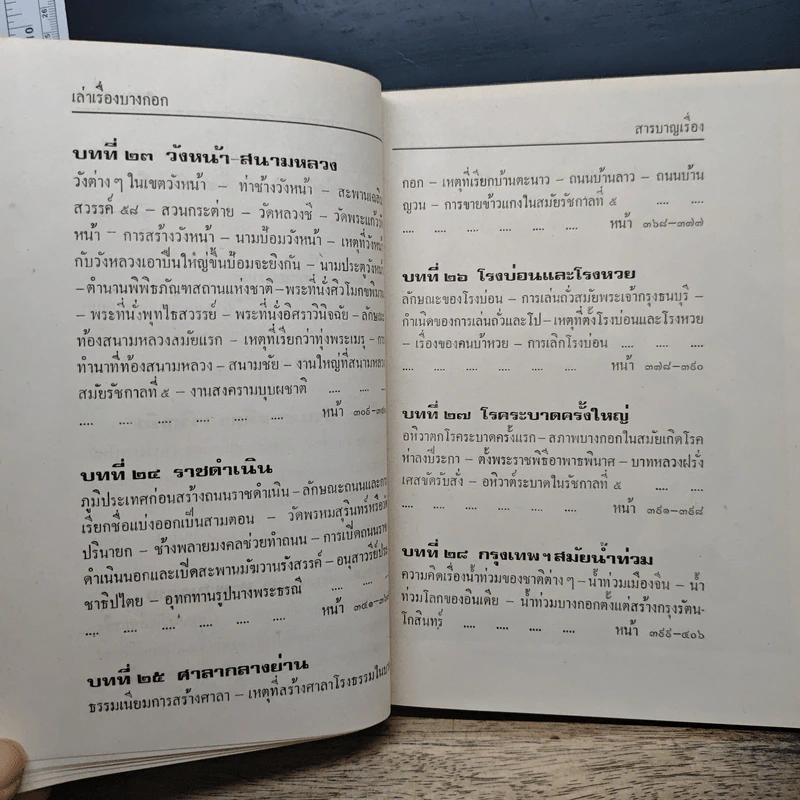 เล่าเรื่องบางกอก
บทที่ ๒๓ วังหน้า-สนามหลวง
วังต่าง ๆ ในเขตวังหน้า – ท่าช้างวังหน้า – สะพานเฉลิม
สวรรค์ ๕๘ – สวนกระต่าย – วัดหลวงชี – วัดพระแก้ววัง
หน้า – การสร้างวังหน้า – นามป้อมวังหน้า – เหตุที่วังหน้า
กับวังหลวงเอาปืนใหญ่ขึ้นป้อมจะยิงกัน – นามประตูวังหน้า
–ตำนานพิพิธภัณฑสถานแห่งชาติ – พระที่นั่งศิวโมกขพิมาน
– พระที่นั่งพุทไธสวรรย์ – พระที่นั่งอิศราวินิจฉัย – ลักษณะ
ท้องสนามหลวงสมัยแรก – เหตุที่เรียกว่าทุ่งพระเมรุ – การ
ทำนาที่ท้องสนามหลวง – สนามชัย – งานใหญ่ที่สนามหลวง
สมัยรัชกาลที่ ๕ – งานสงครามบุบผชาติ .... .... ....
.... .... .... .... .... .... หน้า ๓๐๙–
บทที่ ๒๔ ราชดำเนิน
ภูมิประเทศก่อนสร้างถนนราชดำเนิน – ลักษณะถนนและการ
เรียกชื่อแบ่งออกเป็นสามตอน – วัดพรหมสุรินทร์หรือวัด
ปรินายก – ช้างพลายมงคลช่วยทำถนน – การเปิดถนนราช
ดำเนินนอกและเปิดสะพานมัฆวานรังสรรค์ – อนุสาวรีย์ประ
ชาธิปไตย – อุทกทานรูปนางพระธรณี .... .... ....
.... .... .... .... .... .... หน้า ๓๔๑–
บทที่ ๒๕ ศาลากลางย่าน
ธรรมเนียมการสร้างศาลา – เหตุที่สร้างศาลาโรงธรรมในบาง
สารบาญเรื่อง
กอก – เหตุที่เรียกบ้านตะนาว – ถนนบ้านลาว – ถนนบ้าน
ญวน – การขายข้าวแกงในสมัยรัชกาลที่ ๕ .... ....
.... .... .... .... .... .... หน้า ๓๖๘–๓๗๗
บทที่ ๒๖ โรงบ่อนและโรงหวย
ลักษณะของโรงบ่อน – การเล่นถั่วสมัยพระเจ้ากรุงธนบุรี –
กำเนิดของการเล่นถั่วและโป – เหตุที่ตั้งโรงบ่อนและโรงหวย
– เรื่องของคนบ้าหวย – การเลิกโรงบ่อน .... .... ....
.... .... .... .... .... .... หน้า ๓๗๘–๓๙๐
บทที่ ๒๗ โรคระบาดครั้งใหญ่
อหิวาตกโรคระบาดครั้งแรก – สภาพบางกอกในสมัยเกิดโรค
ห่าลงปีระกา – ตั้งพระราชพิธีอาพาธพินาศ – บาทหลวงฝรั่ง
เศสขัดรับสั่ง – อหิวาต์ระบาดในรัชกาลที่ ๕ .... ....
.... .... .... .... .... .... หน้า ๓๙๑–๓๙๘
บทที่ ๒๘ กรุงเทพฯสมัยน้ำท่วม
ความคิดเรื่องน้ำท่วมของชาติต่าง ๆ – น้ำท่วมเมืองจีน – น้ำ
ท่วมโลกของอินเดีย – น้ำท่วมบางกอกตั้งแต่สร้างกรุงรัตน-
โกสินทร์ .... .... .... .... หน้า ๓๙๙–๔๐๖